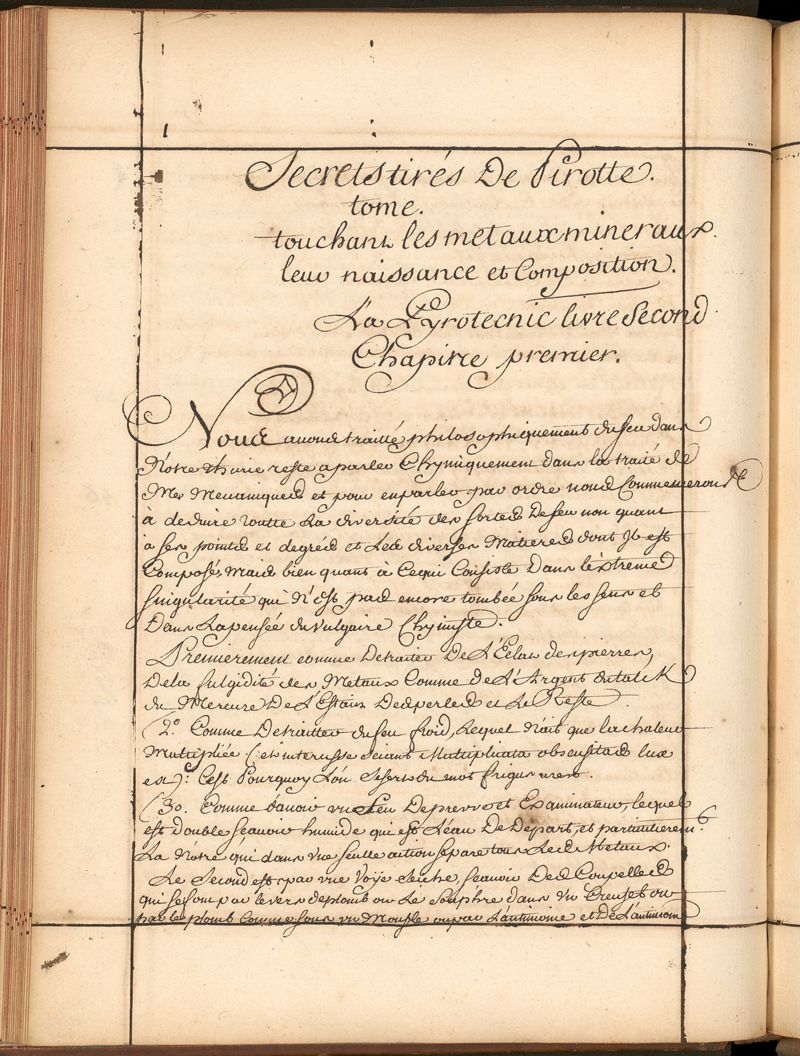 Secrets tirés De Pirotte.
tome.
touchant les metaux mineraux.
leur naissance et Composition.
La Pyrotecnie livre Second
Chapitre premier.
Nous avons traitté philosophiquement du feu dans
Notre reste a parler Chymiquement dans la traité de
Mes Mecaniques et pour en parler par ordre nous Commencerons
à deduire toutte La diversité des sortes De feu non quant
à ses points et degrés et Les diverses Matieres dont Jl est
Composé, Mais bien quant à Cequi Consiste Dans l'extreme
singularité qui N'est pas encore tombée sous les sens et
Dans La pensée du Vulgaire Chymiste.
Premierement comme De traiter De L'Eclat des pierres,
De la fulgidité des Metaux Comme de L'Argent du talck
du Mercure De L'Estain Des perles et Le Reste.
(2.º Comme De traitter du feu froid, Lequel N'ait que la chaleur
Multipliée (: Multiplicata obscuritas lux
est): C'est Pourquoy L'on se sert du mot frigus urens.
(3º. Comme d'avoir un feu De preuve et Examinateur, lequel
est double sçavoir humide qui est L'eau De Depart, et particulierem.t
La Nôtre qui dans une seulle action separe tous Les Metaux.
Le Second est par une Voÿe seiche, sçavoir Des Coupelles
qui se font par le vers de plomb ou Le souphre dans Un Creuset ou
par le plomb Comme sous un Moufle ou par L'antimoine et De L'antimoine